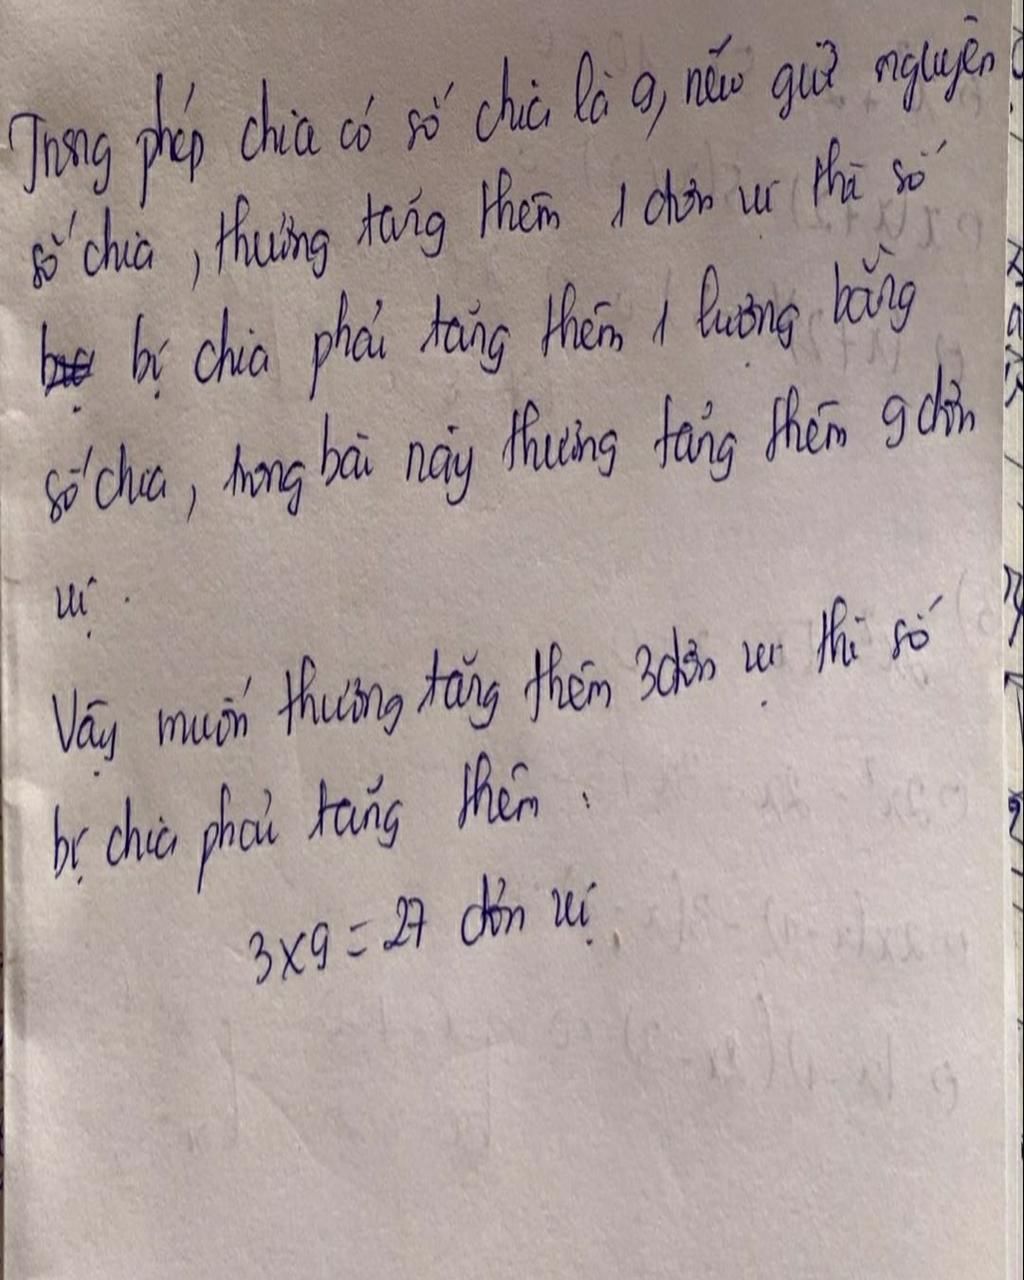 Trong phép chia có số chia là 9, nếu giữ nguyên
số chia, thương tăng thêm 1 đơn vị thì số
bị chia phải tăng thêm 1 lượng bằng
số chia, trong bài này thương tăng thêm 9 đơn
vị.
Vậy muốn thương tăng thêm 3 đơn vị thì số
bị chia phải tăng thêm :
3 x 9 = 27 đơn vị.